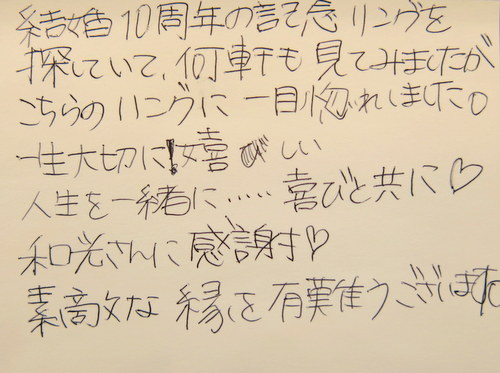 結婚10周年の記念リングを
探していて、何軒も見てみましたが
こちらのリングに一目惚れしました。
一生大切に!嬉しい
人生を一緒に……喜びと共に♡
和光さんに感謝♡
素敵な縁を有難うございます。